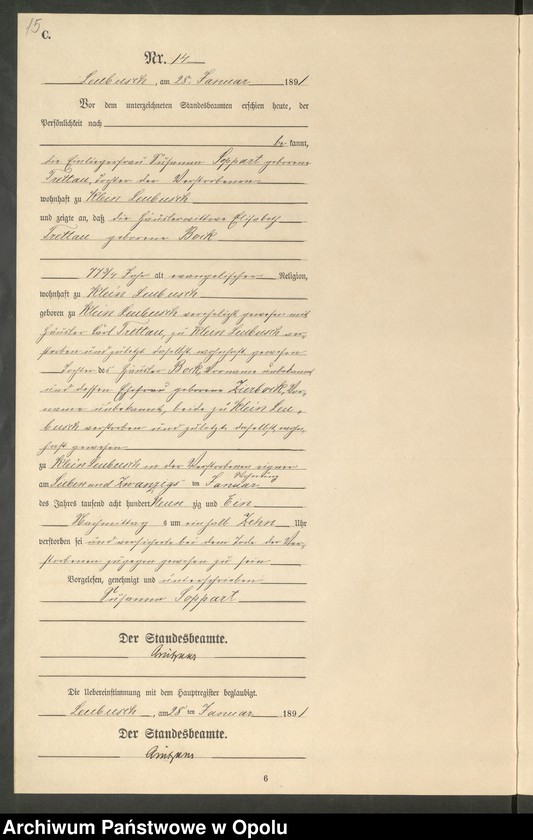 15
C.
Nr. 14
Leubusch, am 28. Januar 1891
Vor dem unterzeichneten Standesbeamten erschien heute, der
Persönlichkeit nach
be kannt,
die Einliegerfrau Susanna Soppart geborene
Trettau, Tochter der Verstorbenen
wohnhaft zu Klein Leubusch
und zeigte an, daß die Häuslerwittwe Elisabeth
Trettau geborene Bock
77 3/4 Jahr alt evangelischer Religion,
wohnhaft zu Klein Leubusch
geboren zu Klein Leubusch verehelicht gewesen mit
Häusler Carl Trettau, zu Klein Leubusch ver-
storben und zuletzt daselbst wohnhaft gewesen
Tochter des Häusler Bock, Vorname unbekannt
und dessen Ehefrau geborene Zurbock, Vor-
name unbekannt, beide zu Klein Leu-
busch verstorben und zuletzt daselbst wohn-
haft gewesen
zu Klein Leubusch in der Verstorbenen eigner
Wohnung
am Sieben und Zwanzigsten Januar
des Jahres tausend acht hundert Neun zig und Ein
Nachmittag s um ein halb Zehn Uhr
verstorben sei und versicherte bei dem Tode der Ver-
storbenen zugegen gewesen zu sein
Vorgelesen, genehmigt und unterschrieben
Susanna Soppart
Der Standesbeamte.
Die Uebereinstimmung mit dem Hauptregister beglaubigt.
Leubusch, am 28 ten Januar 1891
Der Standesbeamte.
6
Archiwum Państwowe w Opolu